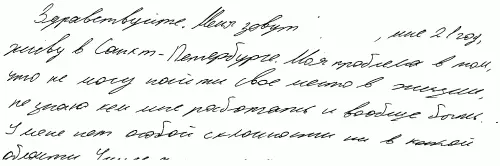 Здравствуйте. Меня зовут , мне 21 год,
живу в Санкт-Петербурге. Моя проблема в том,
что не могу найти свое место в жизни,
не знаю кем мне работать и вообще быть.
У меня нет особой склонности ни в какой
области. У меня